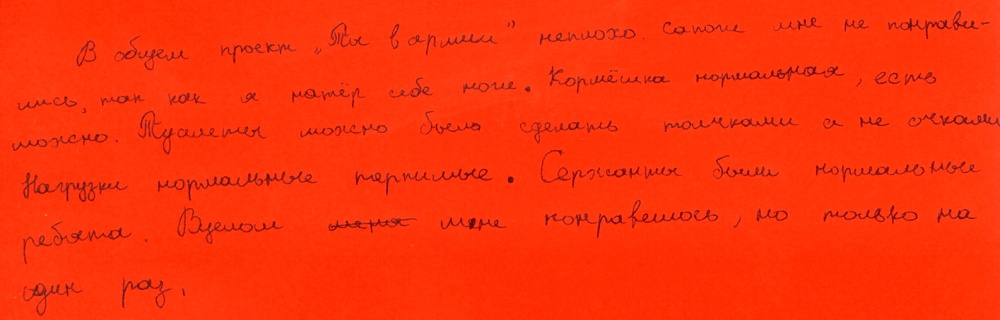 В общем проект „Ты в армии” неплохо. сапоги мне не понрави-
лись, так как я натёр себе ноги. Кормёшка нормальная, есть
можно. Туалеты можно было сделать толчками а не очками
Нагрузки нормальные терпимые. Сержанты были нормальные
ребята. Вцелом меня мне понравелось, но только на
один раз.